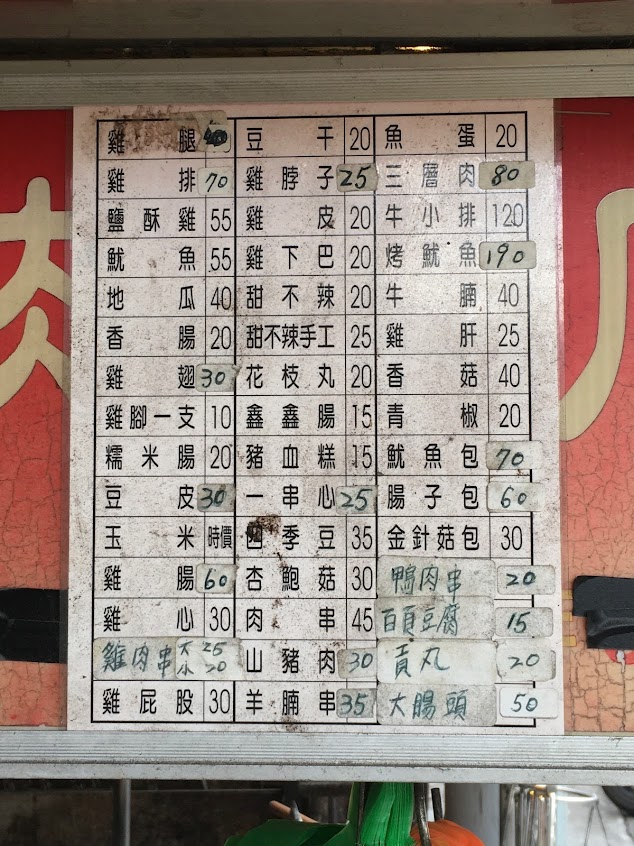 雞腿 豆干 20 魚蛋 20
雞排 70 雞脖子 25 三層肉 80
鹽酥雞 55 雞皮 20 牛小排 120
魷魚 55 雞下巴 20 烤魷魚 190
地瓜 40 甜不辣 20 牛腩 40
香腸 20 甜不辣手工 25 雞肝 25
雞翅 30 花枝丸 20 香菇 40
雞腳一支 10 鑫鑫腸 15 青椒 20
糯米腸 20 豬血糕 15 魷魚包 70
豆皮 30 一串心 25 腸子包 60
玉米 時價 四季豆 35 金針菇包 30
雞腸 60 杏鮑菇 30 鴨肉串 20
雞心 30 肉串 45 百頁豆腐 15
雞肉串 大25 小20 山豬肉 30 貢丸 20
雞屁股 30 羊腩串 35 大腸頭 50